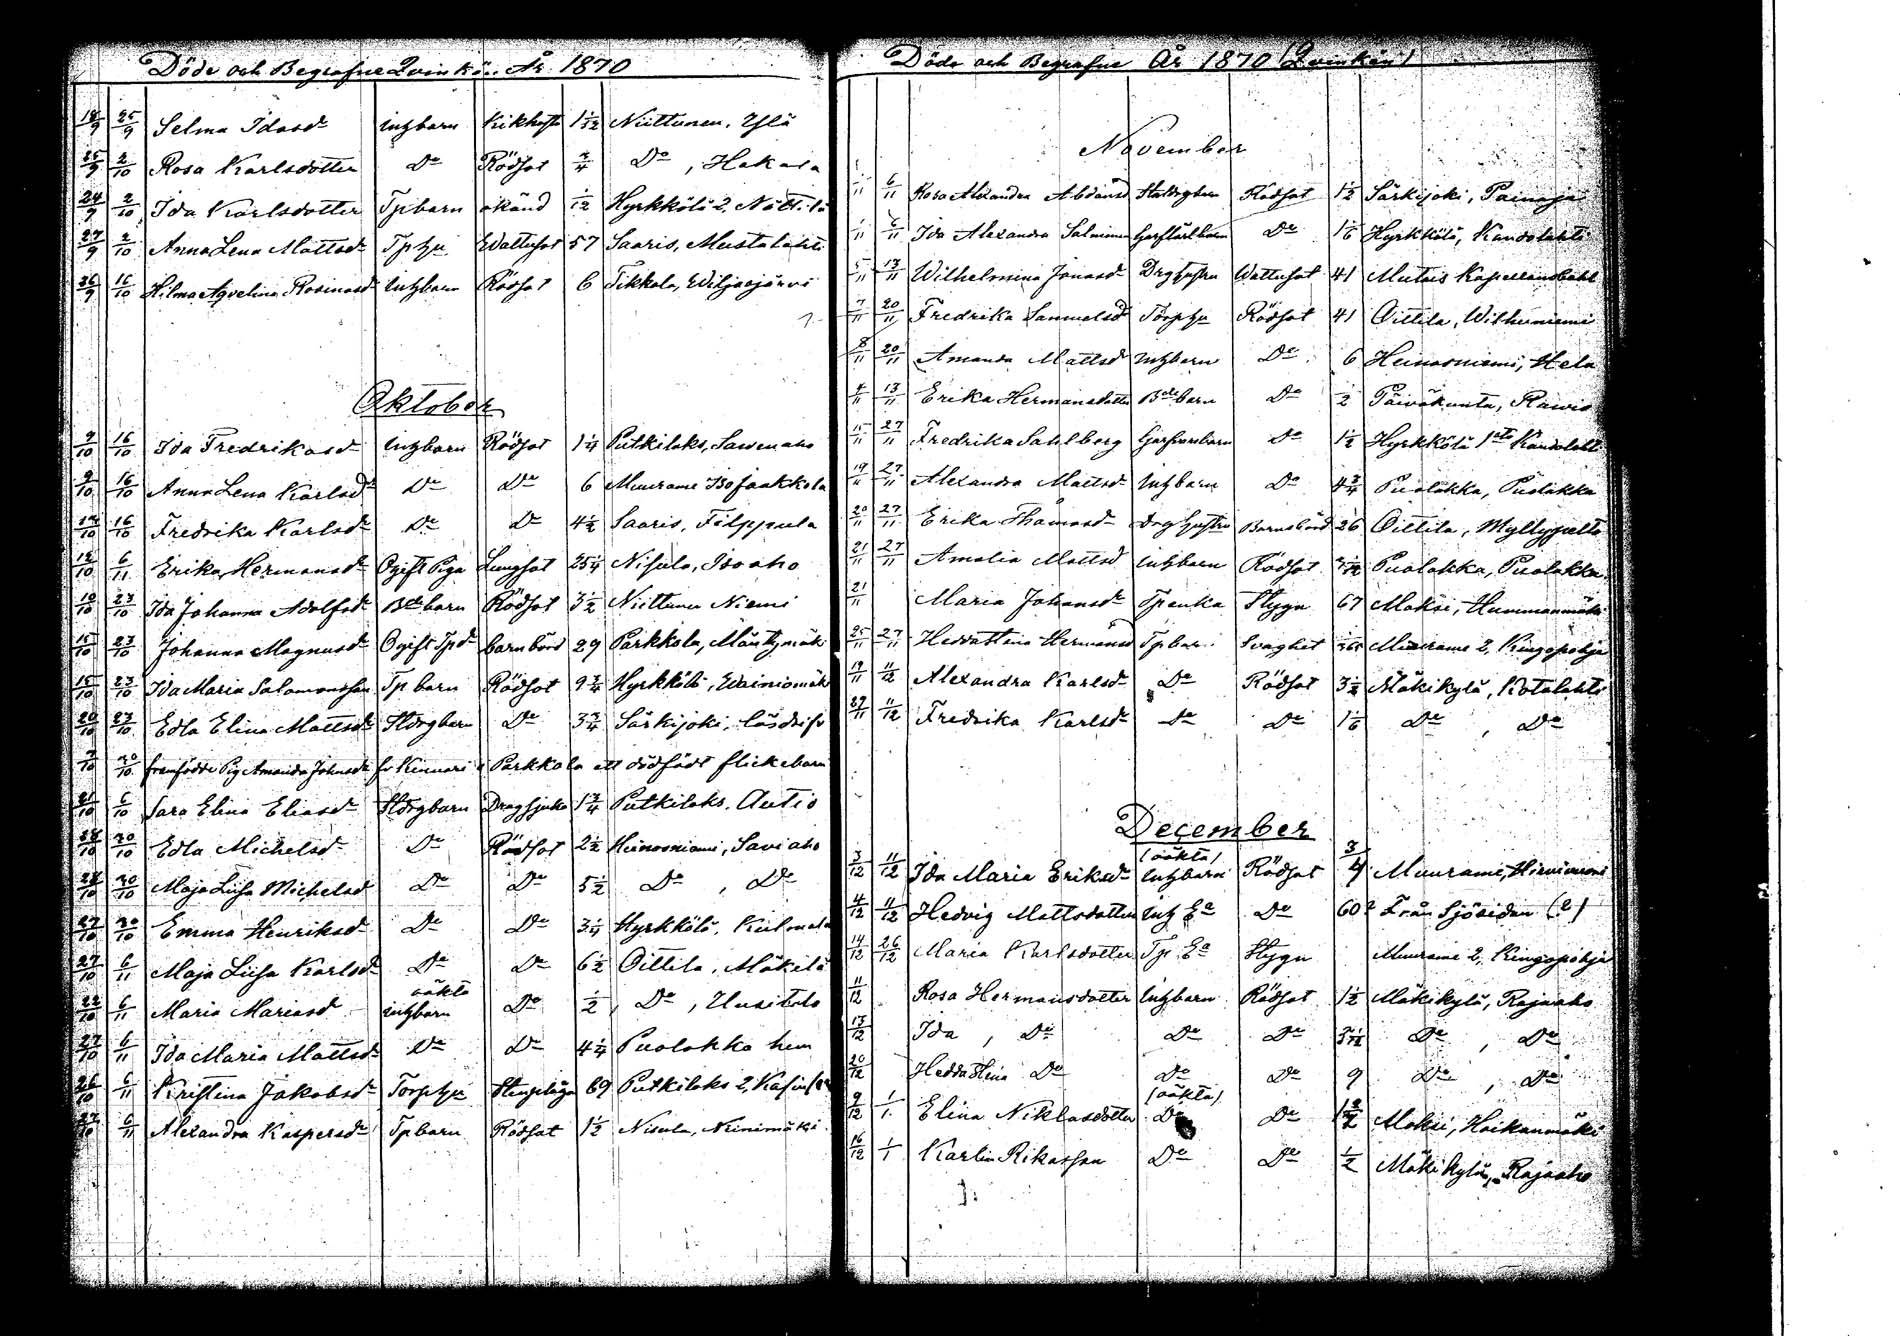 Döde och Begrafne Qvinkön År 1870
18/9 25/9 Selma Idasdr Inhbarn Kikhosta 1 1/12 Niittunen, Ylä
25/9 2/10 Rosa Karlsdotter Do Rödsot 3/4 Do, Hakala
24/9 2/10 Ida Karlsdotter Tpbarn okänd 1/12 Hyrkkölä 2, Nättilä
27/9 2/10 Anna Lena Mattsdr Tphu Wattusot 57 Saaris, Mustalahti
26/9 16/10 Hilma Aqvelina Rosinasd Inhbarn Rödsot 6 Tikkala, Wiljasjärvi
Oktober
9/10 16/10 Ida Fredrikasdr Inhbarn Rödsot 1 1/4 Putkilaks, Savenaho
9/10 16/10 Anna Lena Karlsdr Do Do 6 Muurame Isojaakkola
16/10 Fredrika Karlsdr Do Do 4 1/2 Saaris, Filppula
12/10 6/11 Erika Hermansdr Ogift Piga Lungsot 25 1/4 Nisula, Isoaho
10/10 23/10 Ida Johanna Adolfsdr Bdebarn Rödsot 3 1/2 Niittunen Niemi
15/10 23/10 Johanna Magnusdr Ogift Tpdr barnbörd 29 Parkkola, Mäntymäki
15/10 23/10 Ida Maria Salomonsson Tp barn Rödsot 9 3/4 Hyrkkölä, Wainiomäki
20/10 23/10 Edla Elina Mattsdr Stdrgbarn Do 3 3/4 Särkijoki,
7/10 30/10 framfödde Pig Amanda Johnsdr fr Kinnari i Parkkola ett dödfödt flickebarn
21/10 6/10 Sara Elina Eliasdr Stdrgbarn Dragsjuka 1 3/4 Putkilaks, Autio
28/10 30/10 Edla Michelsdr Do Rödsot 2 1/2 Heinosniemi, Saviaho
28/10 30/10 Maja Lisa Michelsd Do Do 5 1/2 Do, Do
27/10 30/10 Emma Henriksdr Do Do 3 1/4 Hyrkkölä, Kulmala
27/10 6/11 Maja Lisa Karlsdr Do Do 6 1/2 Oittila, Mäkilä
22/10 6/11 Maria Mariasd oäkta inhbarn Do 1/2, Do, Uusitalo
27/10 6/11 Ida Maria Mattsdr Do Do 4 1/4 Puolakka hem
26/10 6/11 Kristina Jakobsdr Torphu Stenplåga 69 Putkilaks 2,
27/10 6/11 Alexandra Kaspersdr Tpbarn Rödsot 1 1/2 Nisula, Niinimäki
Döde och Begrafne År 1870 (Qvinkön)
November
1/11 6/11 Rosa Alexandra Stdrgbarn Rödsot 1 1/2 Särkijoki, Painaja
1/11 6/11 Ida Alexandra Salminen Do 1 1/6 Hyrkkölä, Kandolahti
5/11 13/11 Wilhelmina Jonasdr Drghustru Wattusot 41 Mutais Kapellansbohl
7/11 20/11 Fredrika Samuelsdr Torphu Rödsot 41 Oittila, Wilhuniemi
8/11 20/11 Amanda Mattsd Inhbarn Do 6 Heinosniemi, Hela
4/11 13/11 Erika Hermansdotter Bdebarn Do 1/2 Päiväkunta, Rawis
15/11 27/11 Fredrika Sahlberg Do 1 1/2 Hyrkkölä 1sta Kandolahti
19/11 27/11 Alexandra Mattsd Inhbarn Do 4 3/4 Puolakka, Puolakka
20/11 27/11 Erika Thomasdr Drg hustru Barnsbörd 26 Oittila, Myllypelto
21/11 27/11 Amalia Mattsd Inhbarn Rödsot Puolakka, Puolakka
21/11 Maria Johansdr Tpenka Stygn 67 Moksi, Hummanmäki
25/11 27/11 Hedda Stina Hermansd Tpbarn Svaghet Muurame 2, Kingopohja
19/11 11/12 Alexandra Karlsdr Do Rödsot 3 1/2 Mäkikylä, Kotalahti
27/11 11/12 Fredrika Karlsdr Do Do 1 1/6 Do, Do
December
3/12 11/12 Ida Maria Eriksdr (oäkta) Inhbarn Rödsot 3/4 Muurame, Hirvivuori
4/12 11/12 Hedvig Mattsdotter Inh Ea Do 60? Från Sjösidan (?)
14/12 26/12 Maria Karlsdotter Tp Ea Stygn Muurame 2, Kingopohja
11/12 Rosa Hermansdotter Inhbarn Rödsot 1 1/2 Mäkikylä, Rajaaho
13/12 Ida, Do Do Do Do, Do
20/12 Hedda Stina Do Do Do 9 Do, Do
9/12 1/1 Elina Niklasdotter (oäkta) Do Do Moksi, Haikanmäki
16/12 1/1 Karlin Rikasson Do Do 1/2 Mäkikylä, Rajaaho